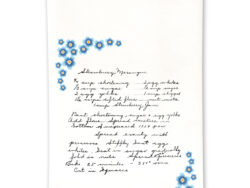 Strawberry Meringue
½ cup shortening 2 egg whites
½ cup sugar ½ cup sugar
2 egg yolks ½ cup
1 ½ cups sifted flour nut meats
½ cup Strawberry Jam
Beat shortening, sugar & egg yolks
Add flour. Spread batter in
bottom
Spread evenly with
preserves. Stiffly beat egg
whites. Beat in sugar gradually
fold in nuts. Spread
Bake 25 minutes - 350°
Cut in squares